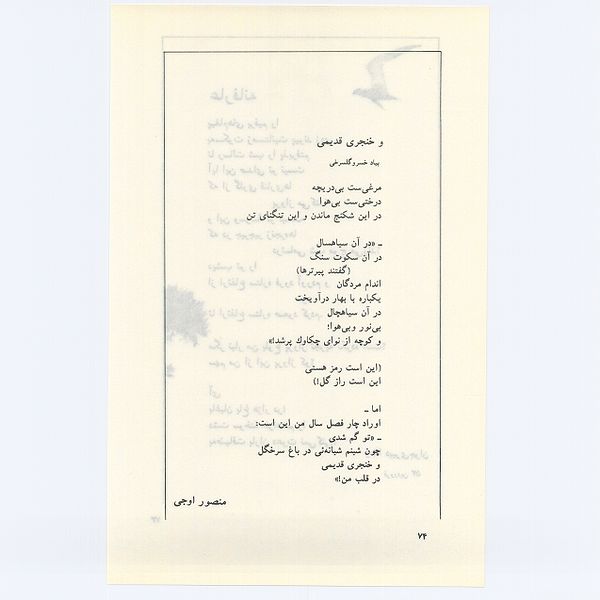 و خنجری قدیمی
بیاد خسرو گلسرخی
مرغی‌ست بی‌دریچه
درختی‌ست بی‌هوا
در این شکنج ماندن و این تنگنای تن
ـ «در آن سیاهسال
در آن سکوت سنگ
(گفتند پیرترها)
اندام مردگان
یکباره با بهار درآویخت
در آن سیاهچال
بی‌نور و بی‌هوا؛
و کوچه از نوای چکاوک پرشد!»
(این است رمز هستی
این است راز گل!)
اما ـ
اوراد چار فصل سال من این است:
ـ «تو گم شدی
چون شبنم شبانه‌ئی در باغ سرخگل
و خنجری قدیمی
در قلب من!»
منصور اوجی
۷۴